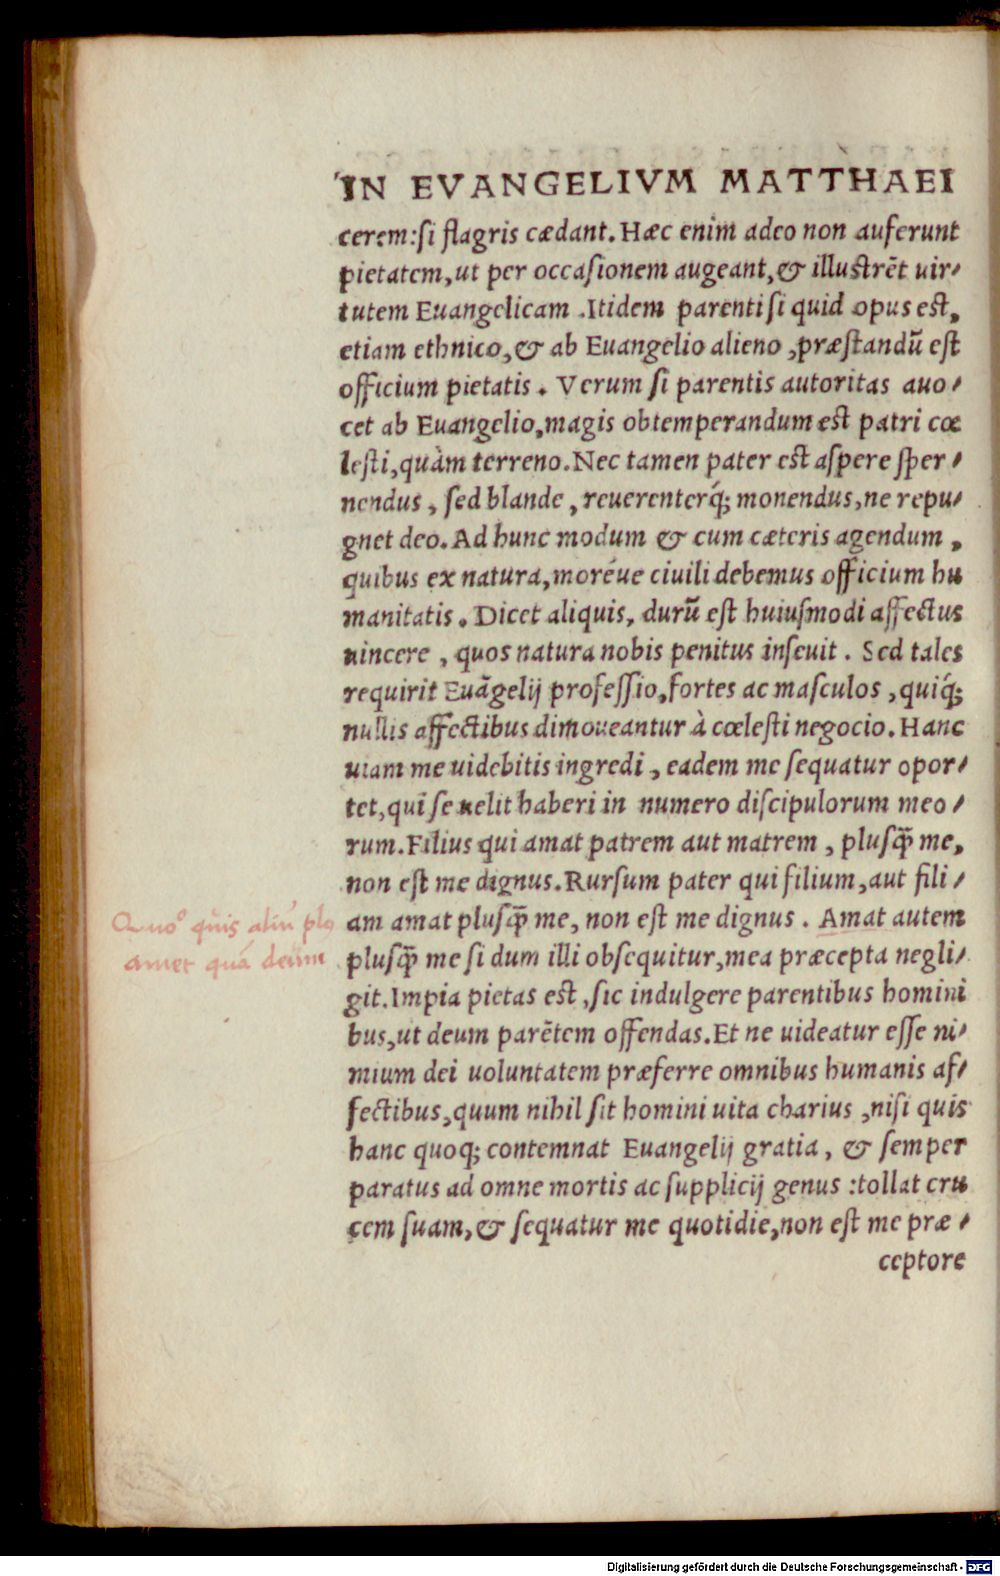 IN EVANGELIVM MATTHAEI
cerem:si flagris cædant. Hæc enim adeo non auferunt
pietatem,ut per occasionem augeant,& illustrēt uir-
tutem Euangelicam .Itidem parenti si quid opus est,
etiam ethnico,& ab Euangelio alieno ,præstandū est
officium pietatis . Verum si parentis autoritas auo-
cet ab Euangelio,magis obtemperandum est patri cœ
lesti,quàm terreno.Nec tamen pater est aspere sper-
nendus , sed blande , reuerenterq́; monendus,ne repu-
gnet deo. Ad hunc modum & cum cæteris agendum ,
quibus ex natura,moréue ciuili debemus officium hu
manitatis . Dicet aliquis, durū est huiusmodi affectus
uincere , quos natura nobis penitus inseuit . Sed tales
requirit Euāgelij professio,fortes ac masculos ,quiq́;
nullis affectibus dimoueantur à cœlesti negocio. Hanc
uiam me uidebitis ingredi , eadem me sequatur opor-
tet,qui se uelit haberi in numero discipulorum meo-
rum.Filius qui amat patrem aut matrem , plusq̄ me,
non est me dignus.Rursum pater qui filium,aut fili-
am amat plusq̄ me, non est me dignus . Amat autem
plusq̄ me si dum illi obsequitur,mea præcepta negli-
git.Impia pietas est ,sic indulgere parentibus homini
bus,ut deum parētem offendas.Et ne uideatur esse ni-
mium dei uoluntatem præferre omnibus humanis af-
fectibus,quum nihil sit homini uita charius ,nisi quis
hanc quoq; contemnat Euangelij gratia , & semper
paratus ad omne mortis ac supplicij genus :tollat cru
cem suam,& sequatur me quotidie,non est me præ-
ceptore
Quuo° quis aliū plq
amet quā deum
Digitalisierung gefördert durch die Deutsche Forschungsgemeinschaft - DFG